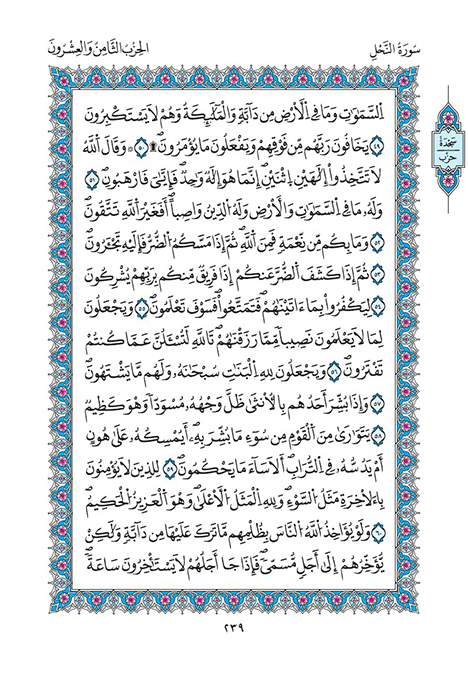 سورة النحل
الحزب الثامن والعشرون
اِ۬لسَّمَٰوَٰتِ وَمَا فِي اِ۬لْأَرْضِ مِن دَآبَّةٖ وَالْمَلَٰٓئِكَةُ وَهُمْ لَا يَسْتَكْبِرُونَ
٤٩ يَخَافُونَ رَبَّهُم مِّن فَوْقِهِمْ وَيَفْعَلُونَ مَا يُؤْمَرُونَ ۩ ٥٠ وَقَالَ اَ۬للَّهُ
لَا تَتَّخِذُوٓاْ إِلَٰهَيْنِ اِ۪ثْنَيْنِ إِنَّمَا هُوَ إِلَٰهٞ وَٰحِدٞ فَإِيَّٰيَ فَارْهَبُونِ ٥١
وَلَهُۥ مَا فِي اِ۬لسَّمَٰوَٰتِ وَالْأَرْضِ وَلَهُ اُ۬لدِّينُ وَاصِباً اَفَغَيْرَ اَ۬للَّهِ تَتَّقُونَ
٥٢ وَمَا بِكُم مِّن نِّعْمَةٖ فَمِنَ اَ۬للَّهِ ثُمَّ إِذَا مَسَّكُمُ اُ۬لضُّرُّ فَإِلَيْهِ تَجْـَٔرُونَ
٥٣ ثُمَّ إِذَا كَشَفَ اَ۬لضُّرَّ عَنكُمْ إِذَا فَرِيقٞ مِّنكُم بِرَبِّهِمْ يُشْرِكُونَ
٥٤ لِيَكْفُرُواْ بِمَآ ءَاتَيْنَٰهُمْ فَتَمَتَّعُواْ فَسَوْفَ تَعْلَمُونَ ٥٥ وَيَجْعَلُونَ
لِمَا لَا يَعْلَمُونَ نَصِيباٗ مِّمَّا رَزَقْنَٰهُمْ تَاللَّهِ لَتُسْـَٔلُنَّ عَمَّا كُنتُمْ
تَفْتَرُونَ ٥٦ وَيَجْعَلُونَ لِلهِ اِ۬لْبَنَٰتِ سُبْحَٰنَهُۥ وَلَهُم مَّا يَشْتَهُونَ
٥٧ وَإِذَا بُشِّرَ أَحَدُهُم بِالْأُنثَىٰ ظَلَّ وَجْهُهُۥ مُسْوَدّاٗ وَهُوَ كَظِيمٞ
٥٨ يَتَوَٰرَىٰ مِنَ اَ۬لْقَوْمِ مِن سُوٓءِ مَا بُشِّرَ بِهِۦٓ أَيُمْسِكُهُۥ عَلَىٰ هُونٍ
أَمْ يَدُسُّهُۥ فِي اِ۬لتُّرَابِ أَلَا سَآءَ مَا يَحْكُمُونَ ٥٩ لِلذِينَ لَا يُؤْمِنُونَ
بِالْأٓخِرَةِ مَثَلُ اُ۬لسَّوْءِ وَلِلهِ اِ۬لْمَثَلُ اُ۬لْأَعْلَىٰ وَهُوَ اَ۬لْعَزِيزُ اُ۬لْحَكِيمُ
٦٠ وَلَوْ يُؤَاخِذُ اُ۬للَّهُ اُ۬لنَّاسَ بِظُلْمِهِم مَّا تَرَكَ عَلَيْهَا مِن دَآبَّةٖ وَلَٰكِنْ
يُّؤَخِّرُهُمْ إِلَىٰٓ أَجَلٖ مُّسَمّىٗ فَإِذَا جَا أَجَلُهُمْ لَا يَسْتَـْٔخِرُونَ سَاعَةٗ
سجدة
حزب
٢٣٩